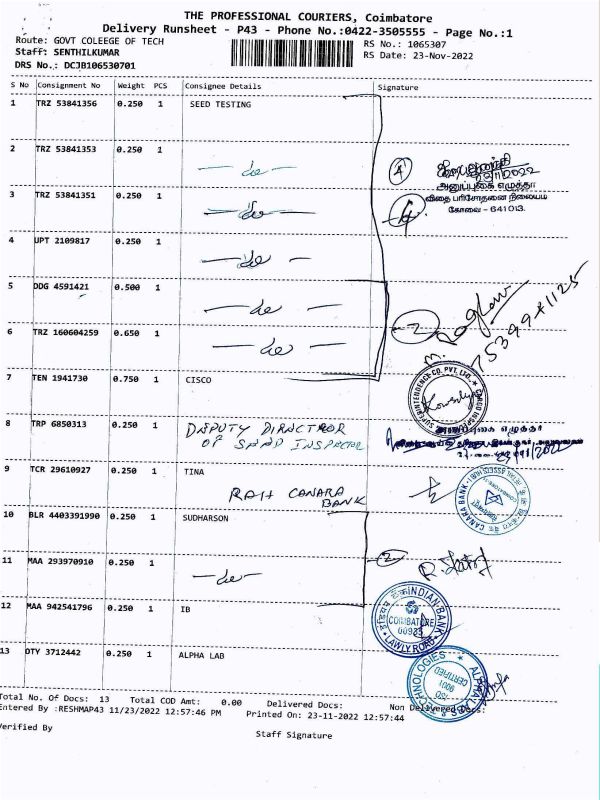 THE PROFESSIONAL COURIERS, Coimbatore
Delivery Runsheet - P43 - Phone No.:0422-3505555 - Page No.:1
Route: GOVT COLEEGE OF TECH
RS No.: 1065307
Staff: SENTHILKUMAR
RS Date: 23-Nov-2022
DRS No.: DCJB106530701
S No Consignment No Weight PCS Consignee Details Signature
1 TRZ 53841356 0.250 1 SEED TESTING
2 TRZ 53841353 0.250 1
— do —
4
23/11/2022
அனுப்புகை எழுத்தர்
விதை பரிசோதனை நிலையம்
கோவை - 641 013.
3 TRZ 53841351 0.250 1
— do —
4 UPT 2109817 0.250 1
— do —
5 DDG 4591421 0.500 1
— do —
2
M. Raghav
75399 41125
6 TRZ 160604259 0.650 1
— do —
7 TEN 1941730 0.750 1 CISCO
SUPERINTENDENCE CO. PVT. LTD.
8 TRP 6850313 0.250 1 DEPUTY DIRECTROR
OF SEED INSPECTOR
9 TCR 29610927 0.250 1 TINA
RAH CANARA
BANK
CANARA BANK
10 BLR 4403391990 0.250 1 SUDHARSON
11 MAA 293970910 0.250 1
— do —
2
12 MAA 942541796 0.250 1 IB
INDIAN BANK
COIMBATORE
LAWLY ROAD
13 DTY 3712442 0.250 1 ALPHA LAB
ALPHA LABS & TECHNOLOGIES
ISO 9001
CERTIFIED
Total No. Of Docs: 13 Total COD Amt: 0.00 Delivered Docs: Non Delivered Docs:
Entered By :RESHMAP43 11/23/2022 12:57:46 PM Printed On: 23-11-2022 12:57:44
Verified By
Staff Signature